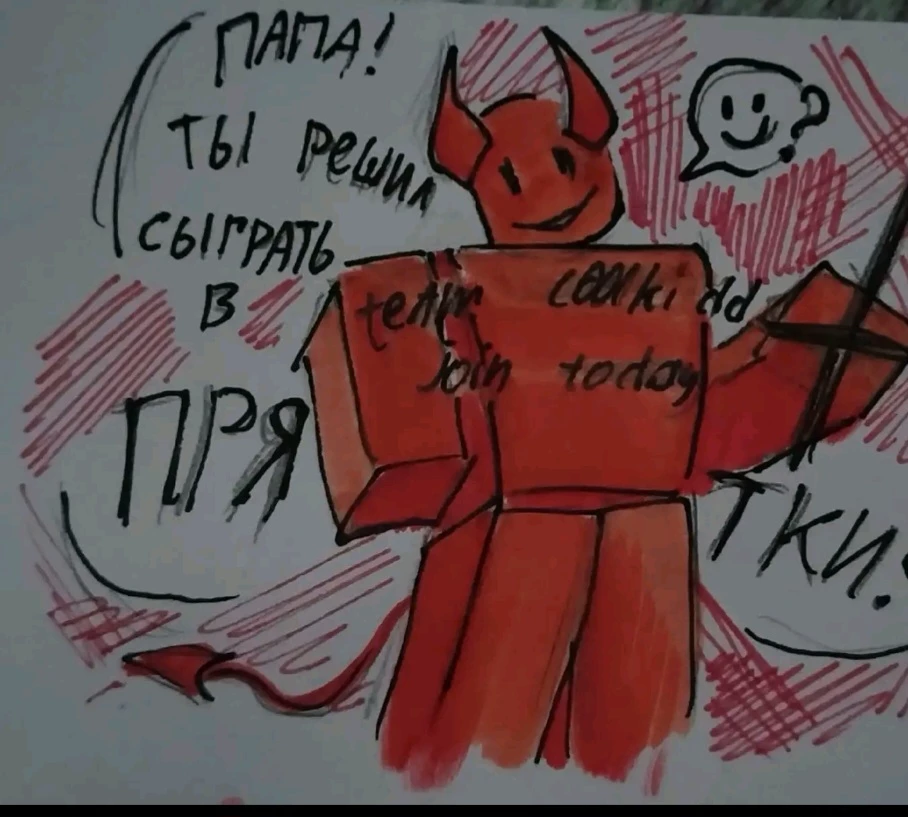 ПАПА!
ТЫ РЕШИЛ
СЫГРАТЬ
В
ПРЯТКИ?
team coolkidd
join today
?